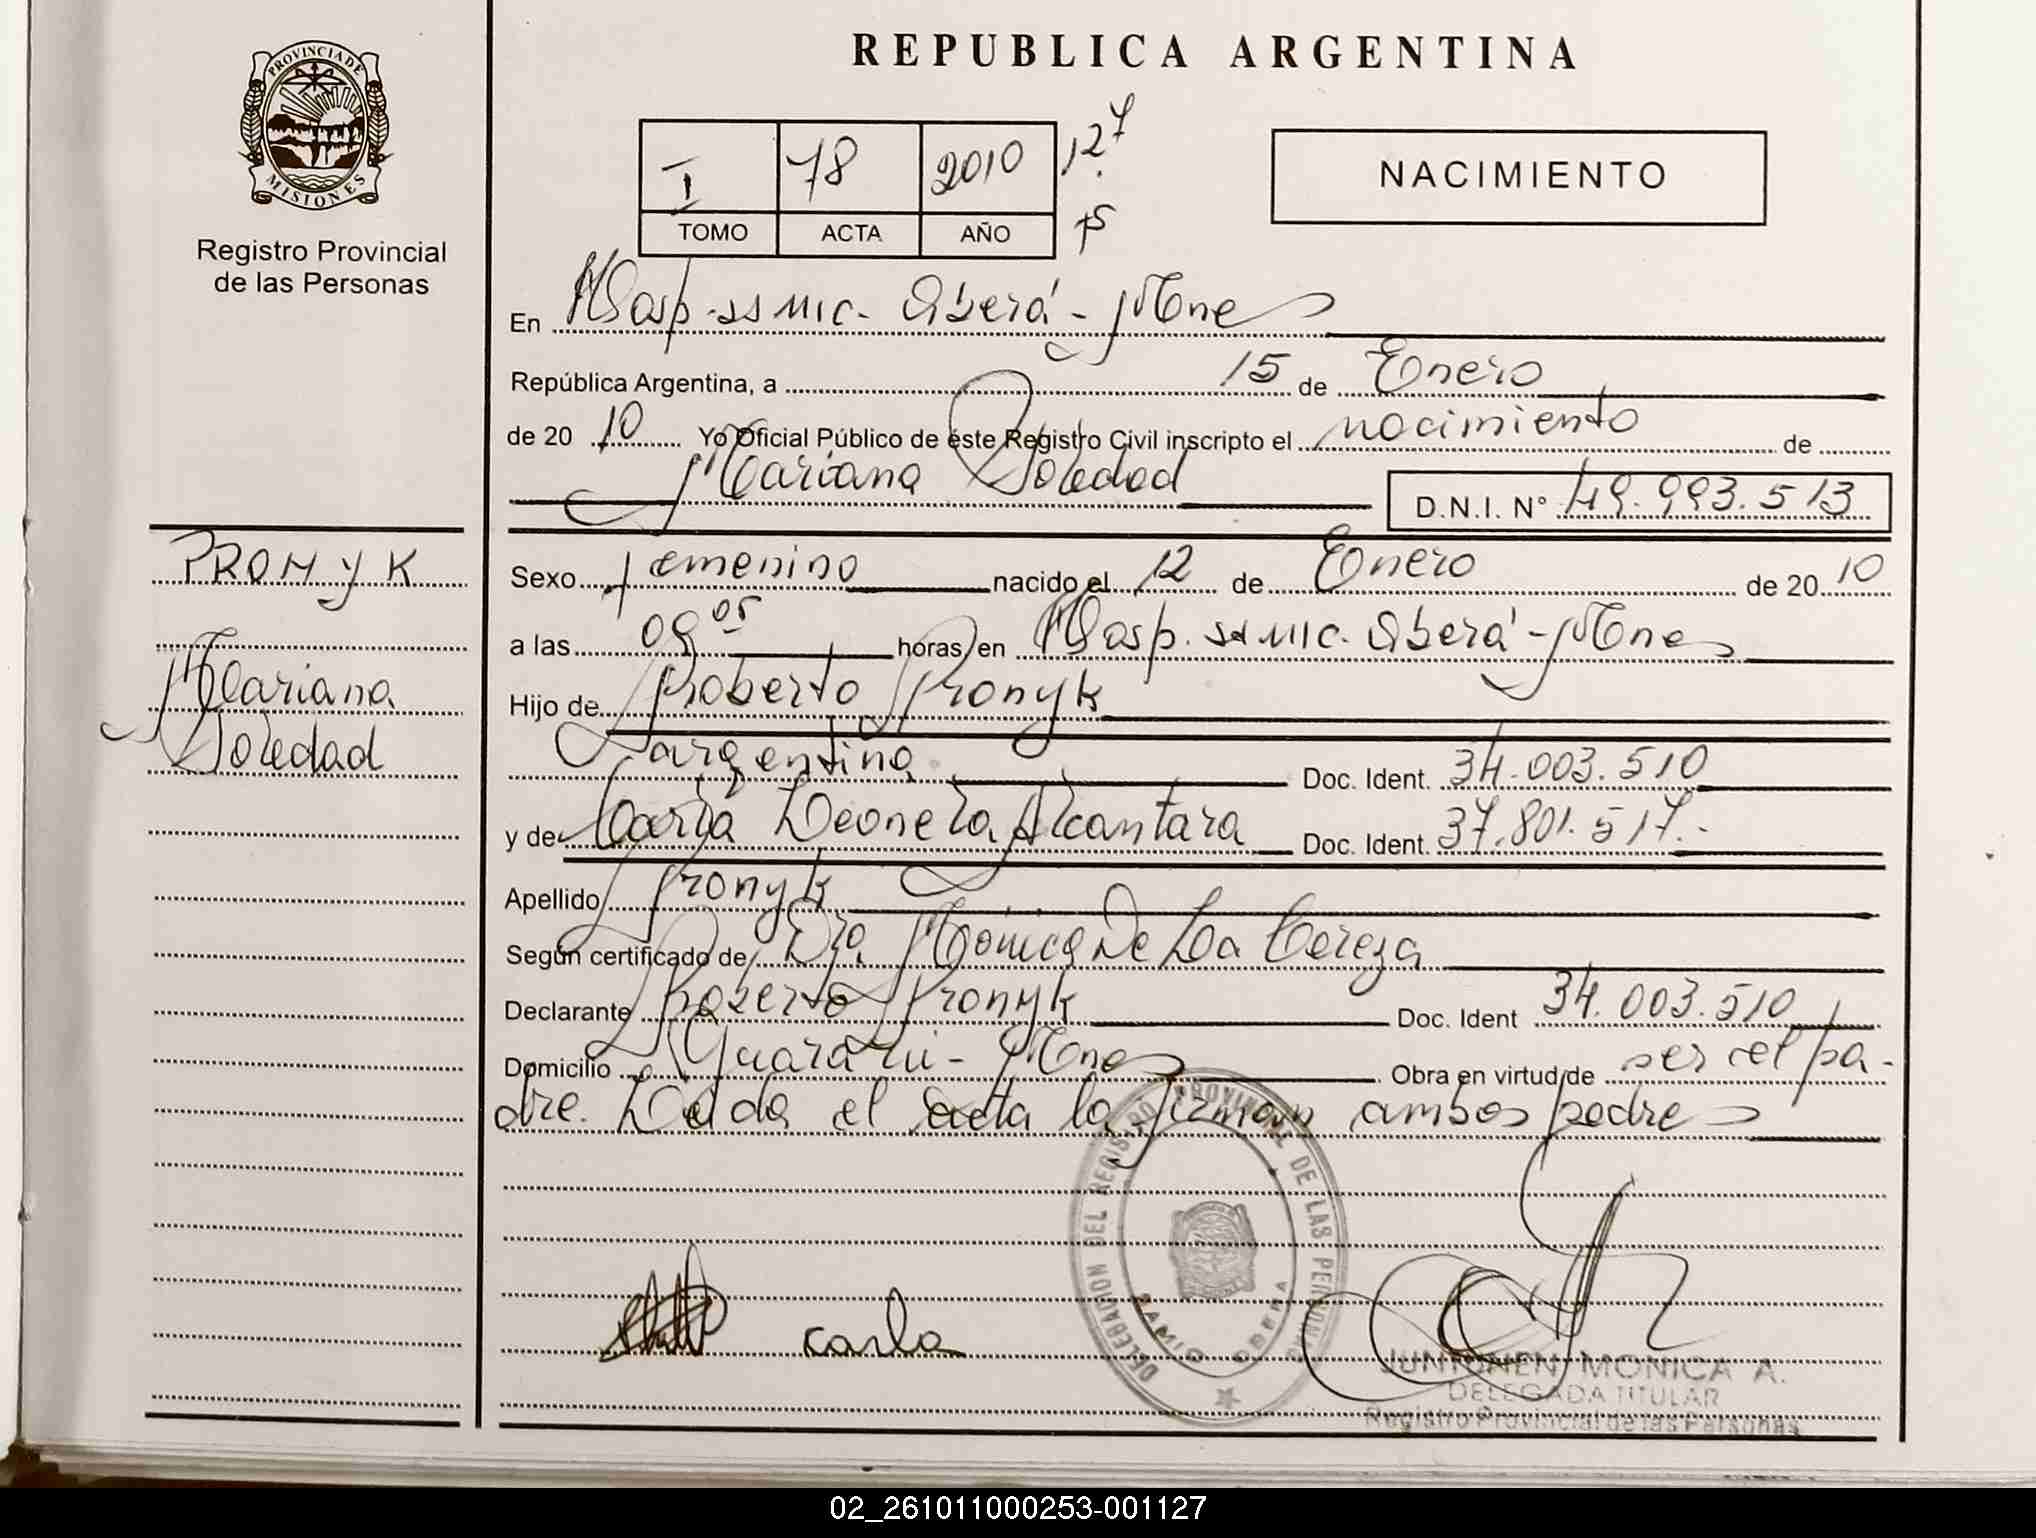 REPUBLICA ARGENTINA
PROVINCIA DE
MISIONES
Registro Provincial
de las Personas
I 78 2010 127
TOMO ACTA AÑO
NACIMIENTO
En Hosp. SSMIC. Oberá - Mnes
República Argentina, a 15 de Enero
de 20 10 Yo Oficial Público de éste Registro Civil inscripto el nacimiento de
Mariana Soledad D.N.I. N° 49.993.513
PRONYK
Mariana
Soledad
Sexo femenino nacido el 12 de Enero de 20 10
a las 09 05 horas en Hosp. SSMIC. Oberá - Mnes
Hijo de Roberto Pronyk
argentino Doc. Ident. 34.003.510
y de Carla Leonela Alcantara Doc. Ident. 37.801.517.-
Apellido Pronyk
Según certificado de Dra Mónica De La Cereza
Declarante Roberto Pronyk Doc. Ident 34.003.510
Domicilio Guaraní - Mnes Obra en virtud de ser el pa-
dre. Leída el acta la firman ambos padres
DELEGACION DEL REGISTRO PROVINCIAL DE LAS PERSONAS
OBERA
Karla
JUNTONEN MONICA A.
DELEGADA TITULAR
Registro Provincial de las Personas
02_261011000253-001127